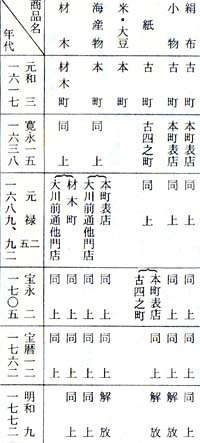 商品名
年代
絹布
小物
紙
米・大豆
海産物
材木
元和三
一六一七
古町
古町
古町
本町
本町
材木町
寛永一五
一六三八
本町表店
本町表店
古四之町
同上
同上
元禄二五
一六八九、九二
同上
同上
同上
本町表店
大川前通他門店
材木町
大川前通他門店
宝永二
一七〇五
同上
同上
本町表店
古四之町
同上
同上
同上
同上
宝暦一二
一七六二
同上
同上
同上
同上
同上
同上
同上
明和九
一七七二
同上
解放
解放
解放
同上
同上